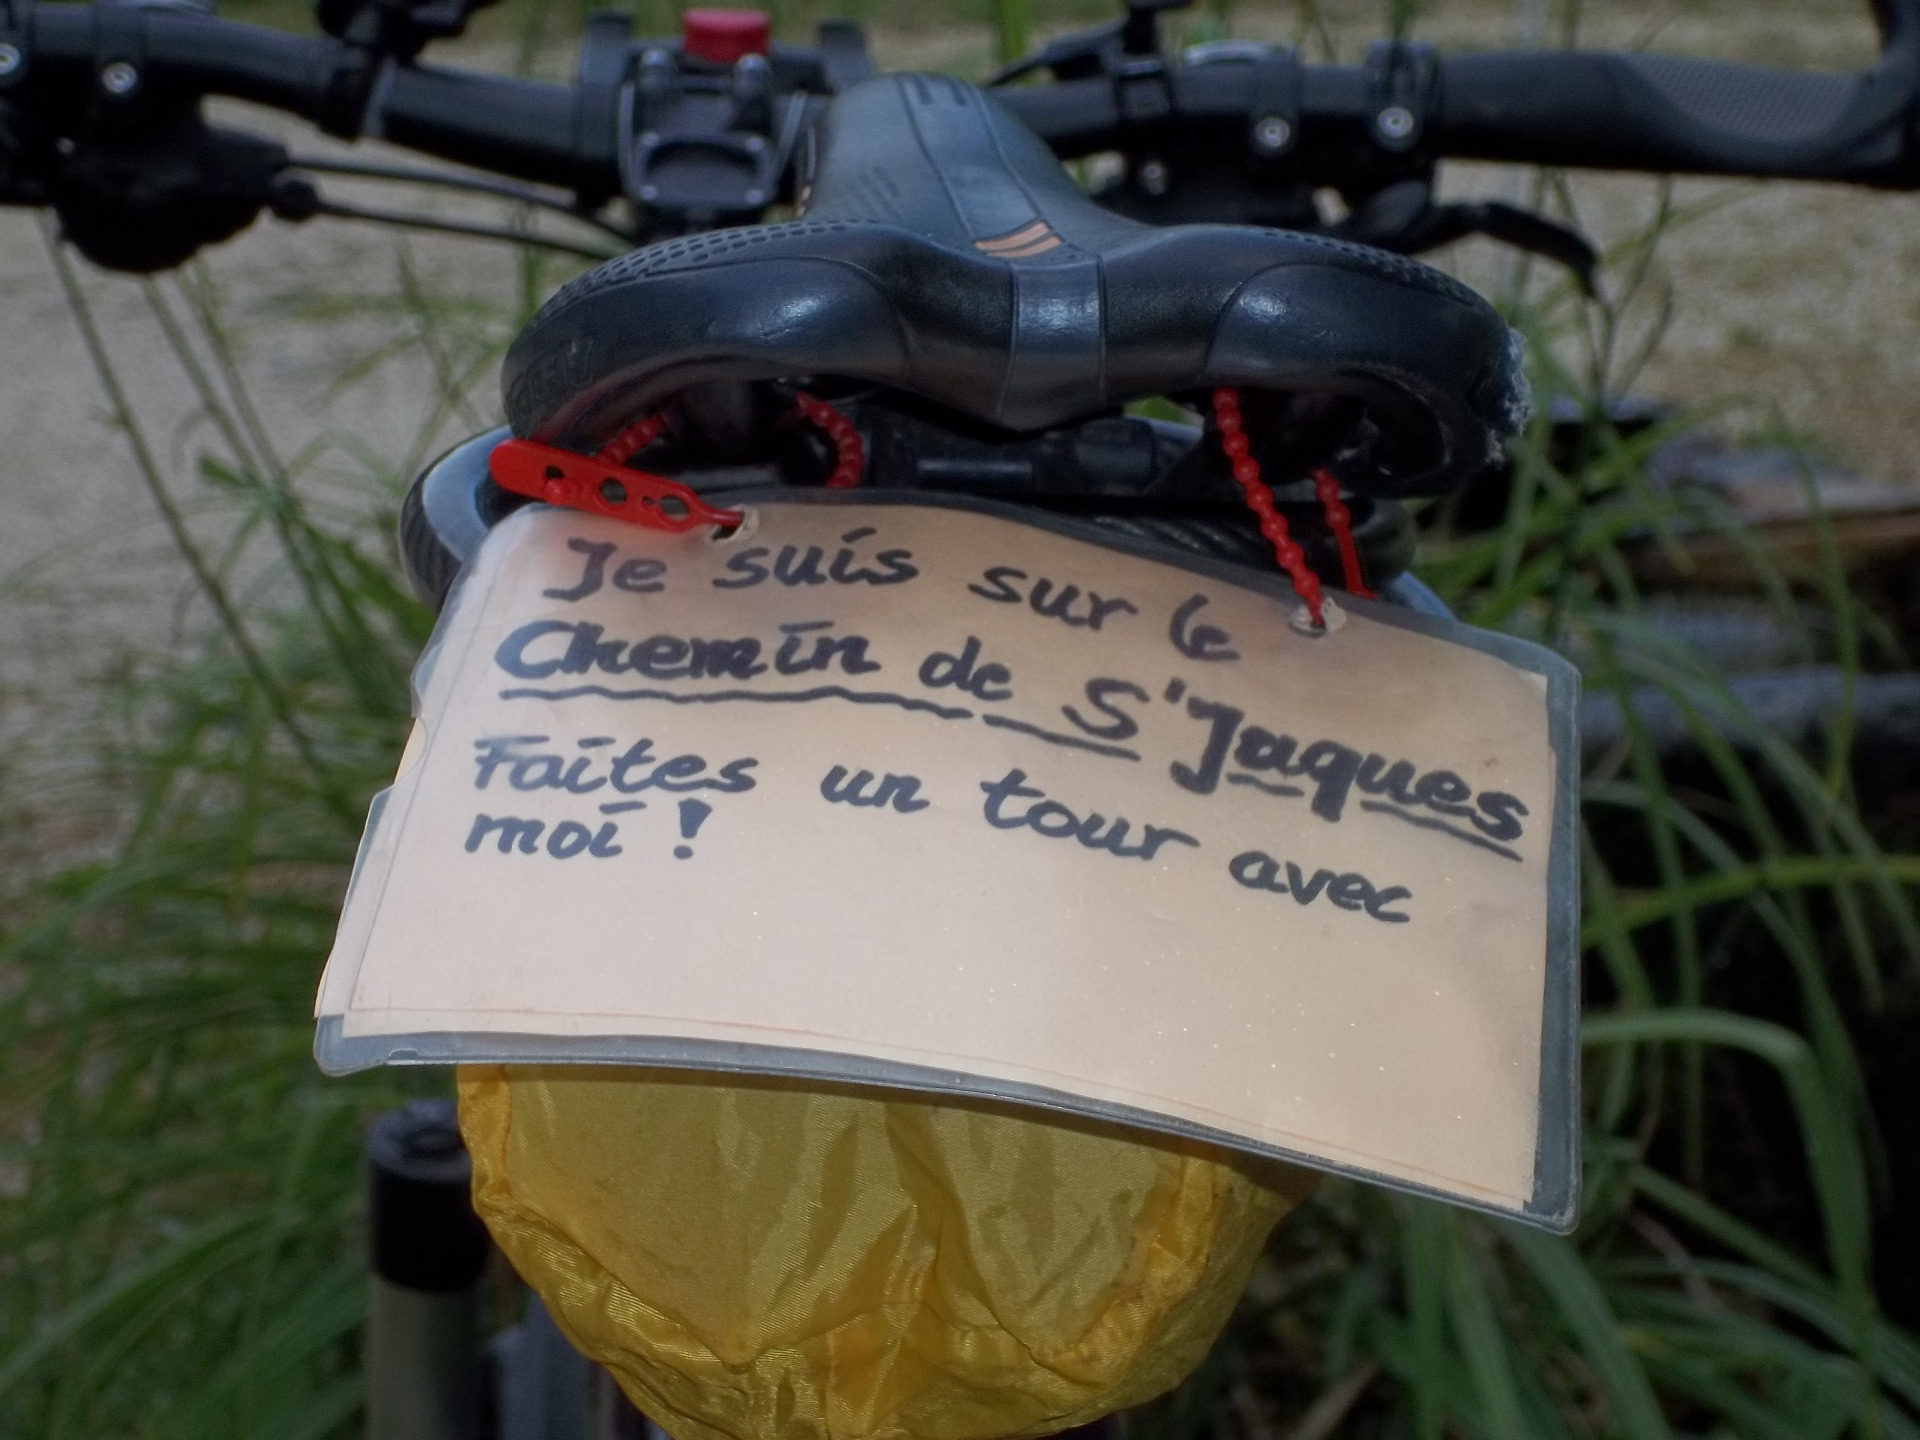 Je suis sur le
Chemin de S'Jaques
Faites un tour avec
moi !